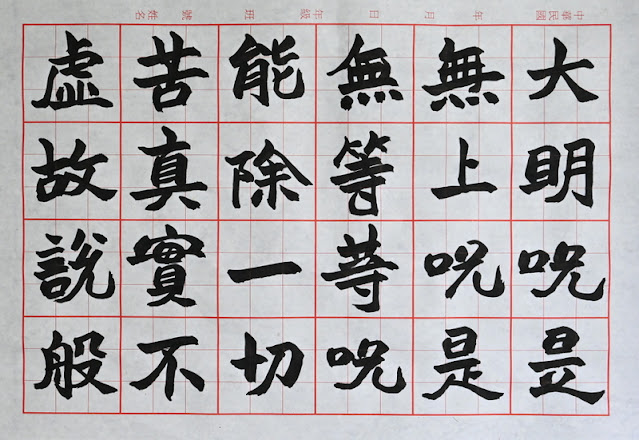 中華民國 年 月 日 年級 班 號 姓名
大明咒是
無上咒是
無等等咒
能除一切
苦真實不
虛故說般